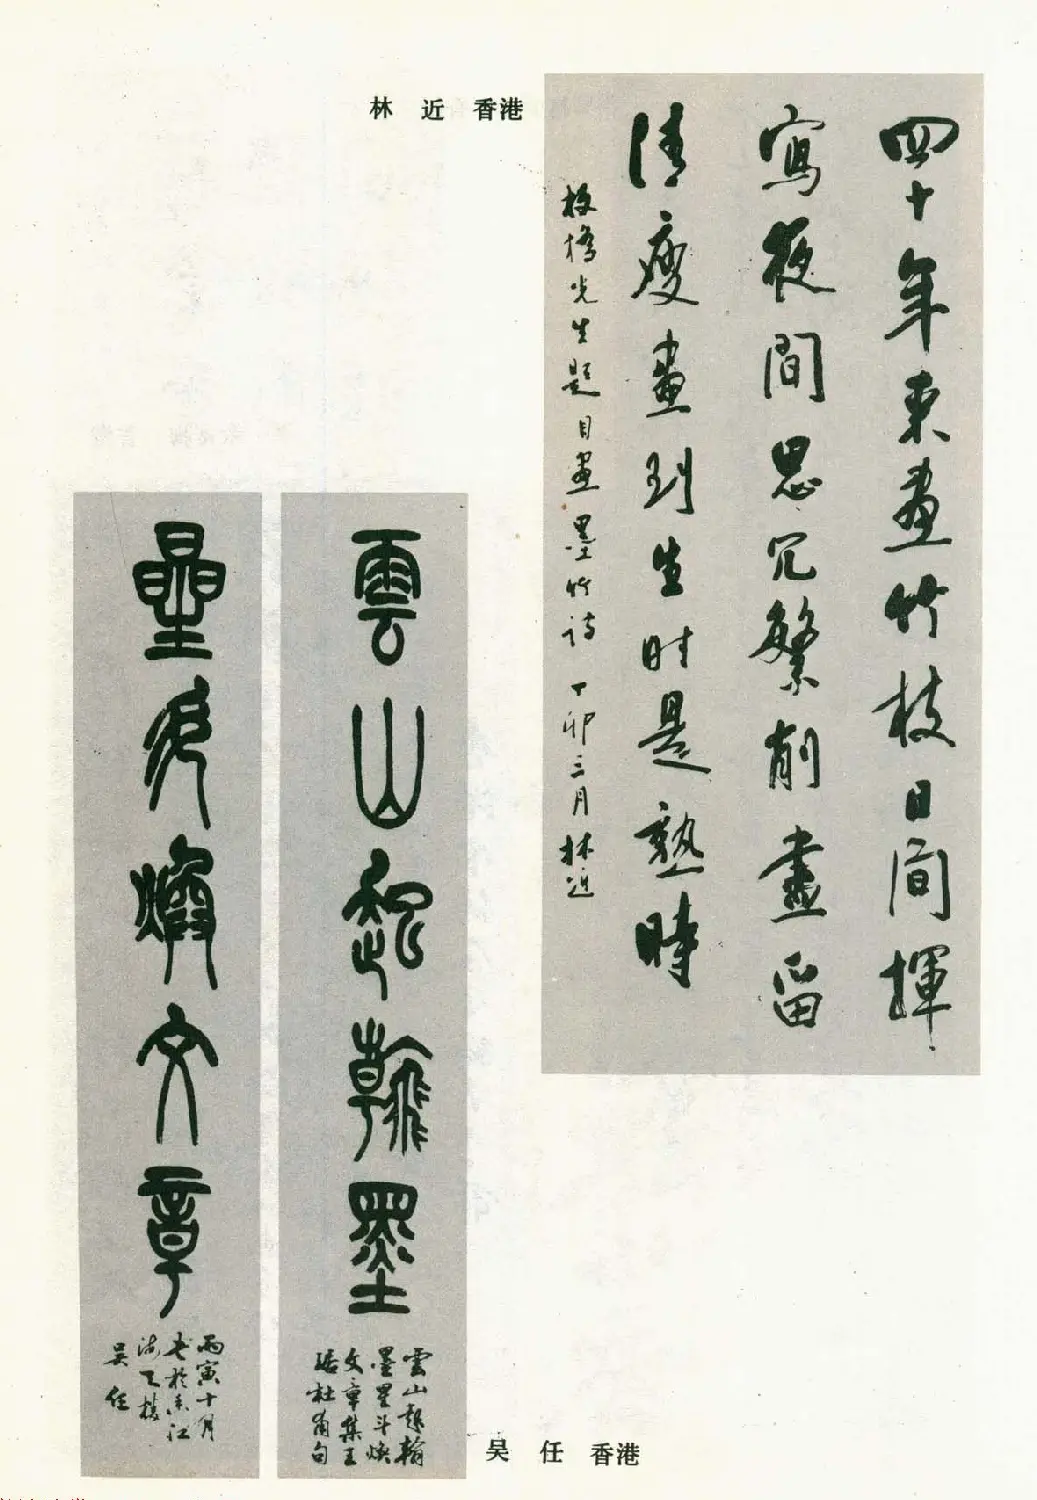 林 近 香港
四十年來畫竹枝日间揮
寫夜間思冗繁削盡留
清瘦畫到生时是熟時
板橋先生題自畫墨竹诗 丁卯三月林近
雲山起翰墨
雲山起翰
墨星斗煥
文章集王
琚杜甫句
星斗煥文章
丙寅十月
书於香江
海天楼
吴任
吴 任 香港